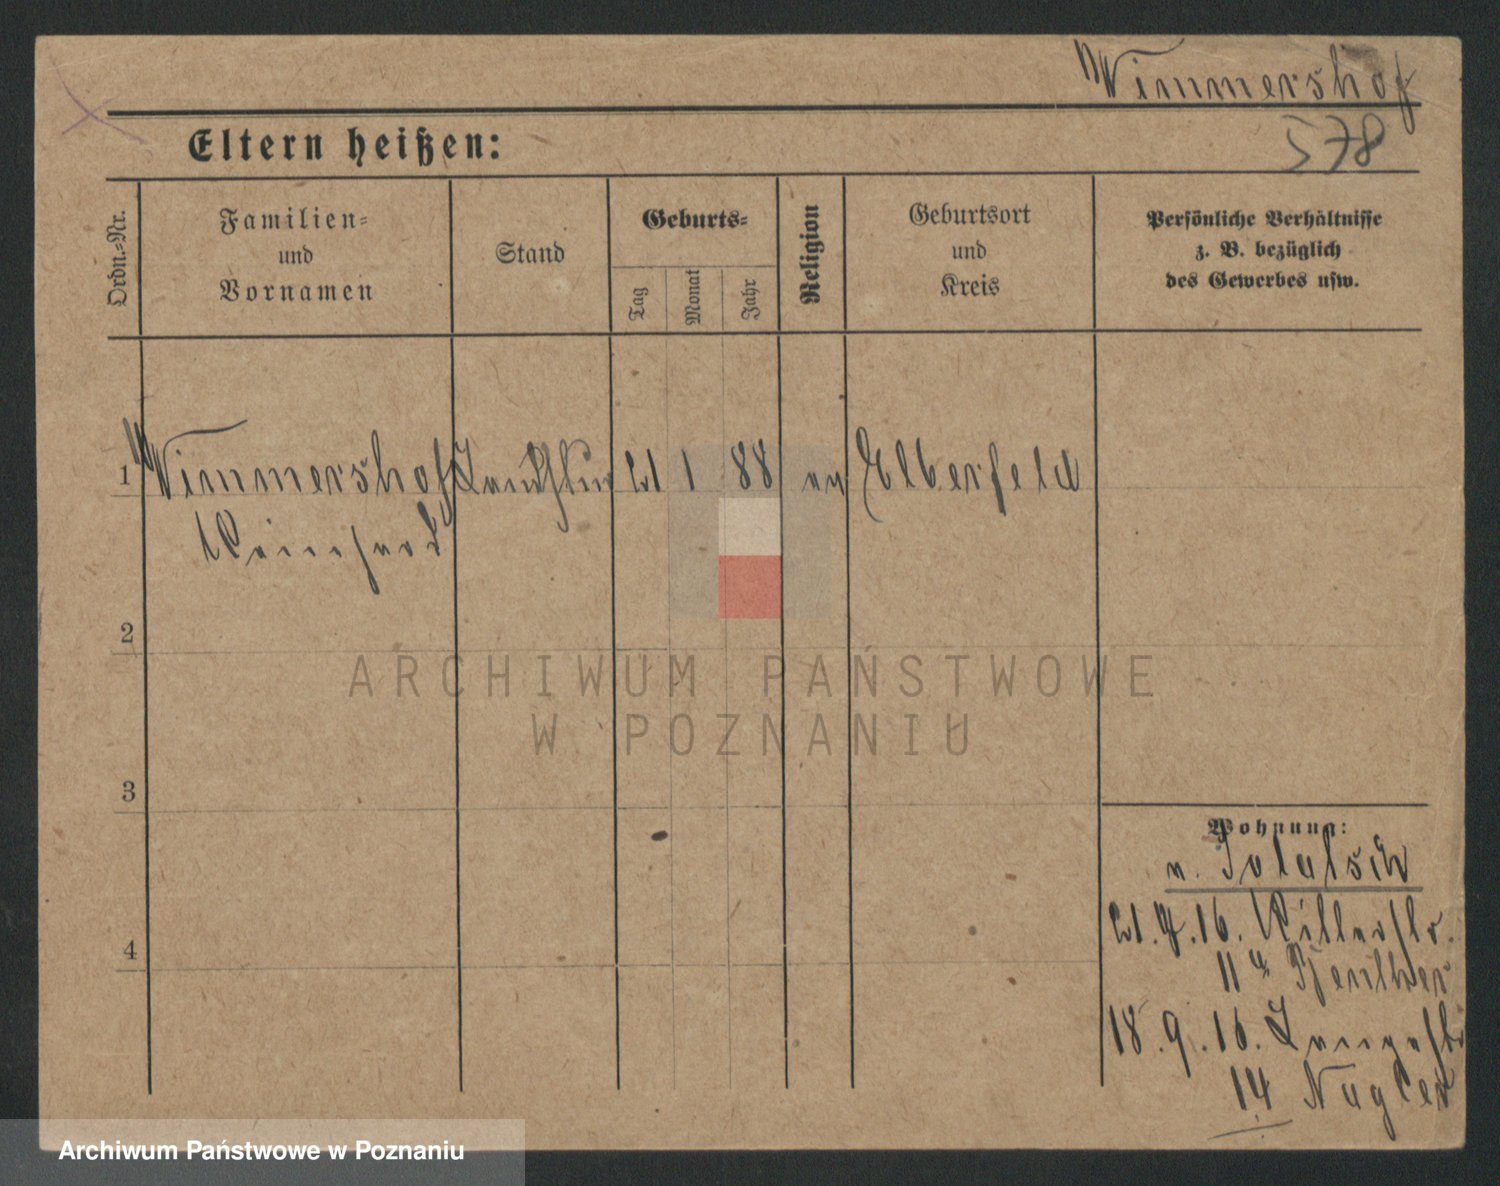 Wimmershof
578
Eltern heißen:
Ordn.-Nr.
Familien-
und
Vornamen
Stand
Geburts-
Tag
Monat
Jahr
Religion
Geburtsort
und
Kreis
Persönliche Verhältnisse
z. B. bezüglich
des Gewerbes usw.
1 Wimmershof 21 1 88 ev Elberfeld
Reinhard
2
ARCHIWUM PAŃSTWOWE
W POZNANIU
3
Wohnung:
v.
21. 16. Ritterstr.
11a
18. 9. 16. Langestr
14 Nagler
4
Archiwum Państwowe w Poznaniu